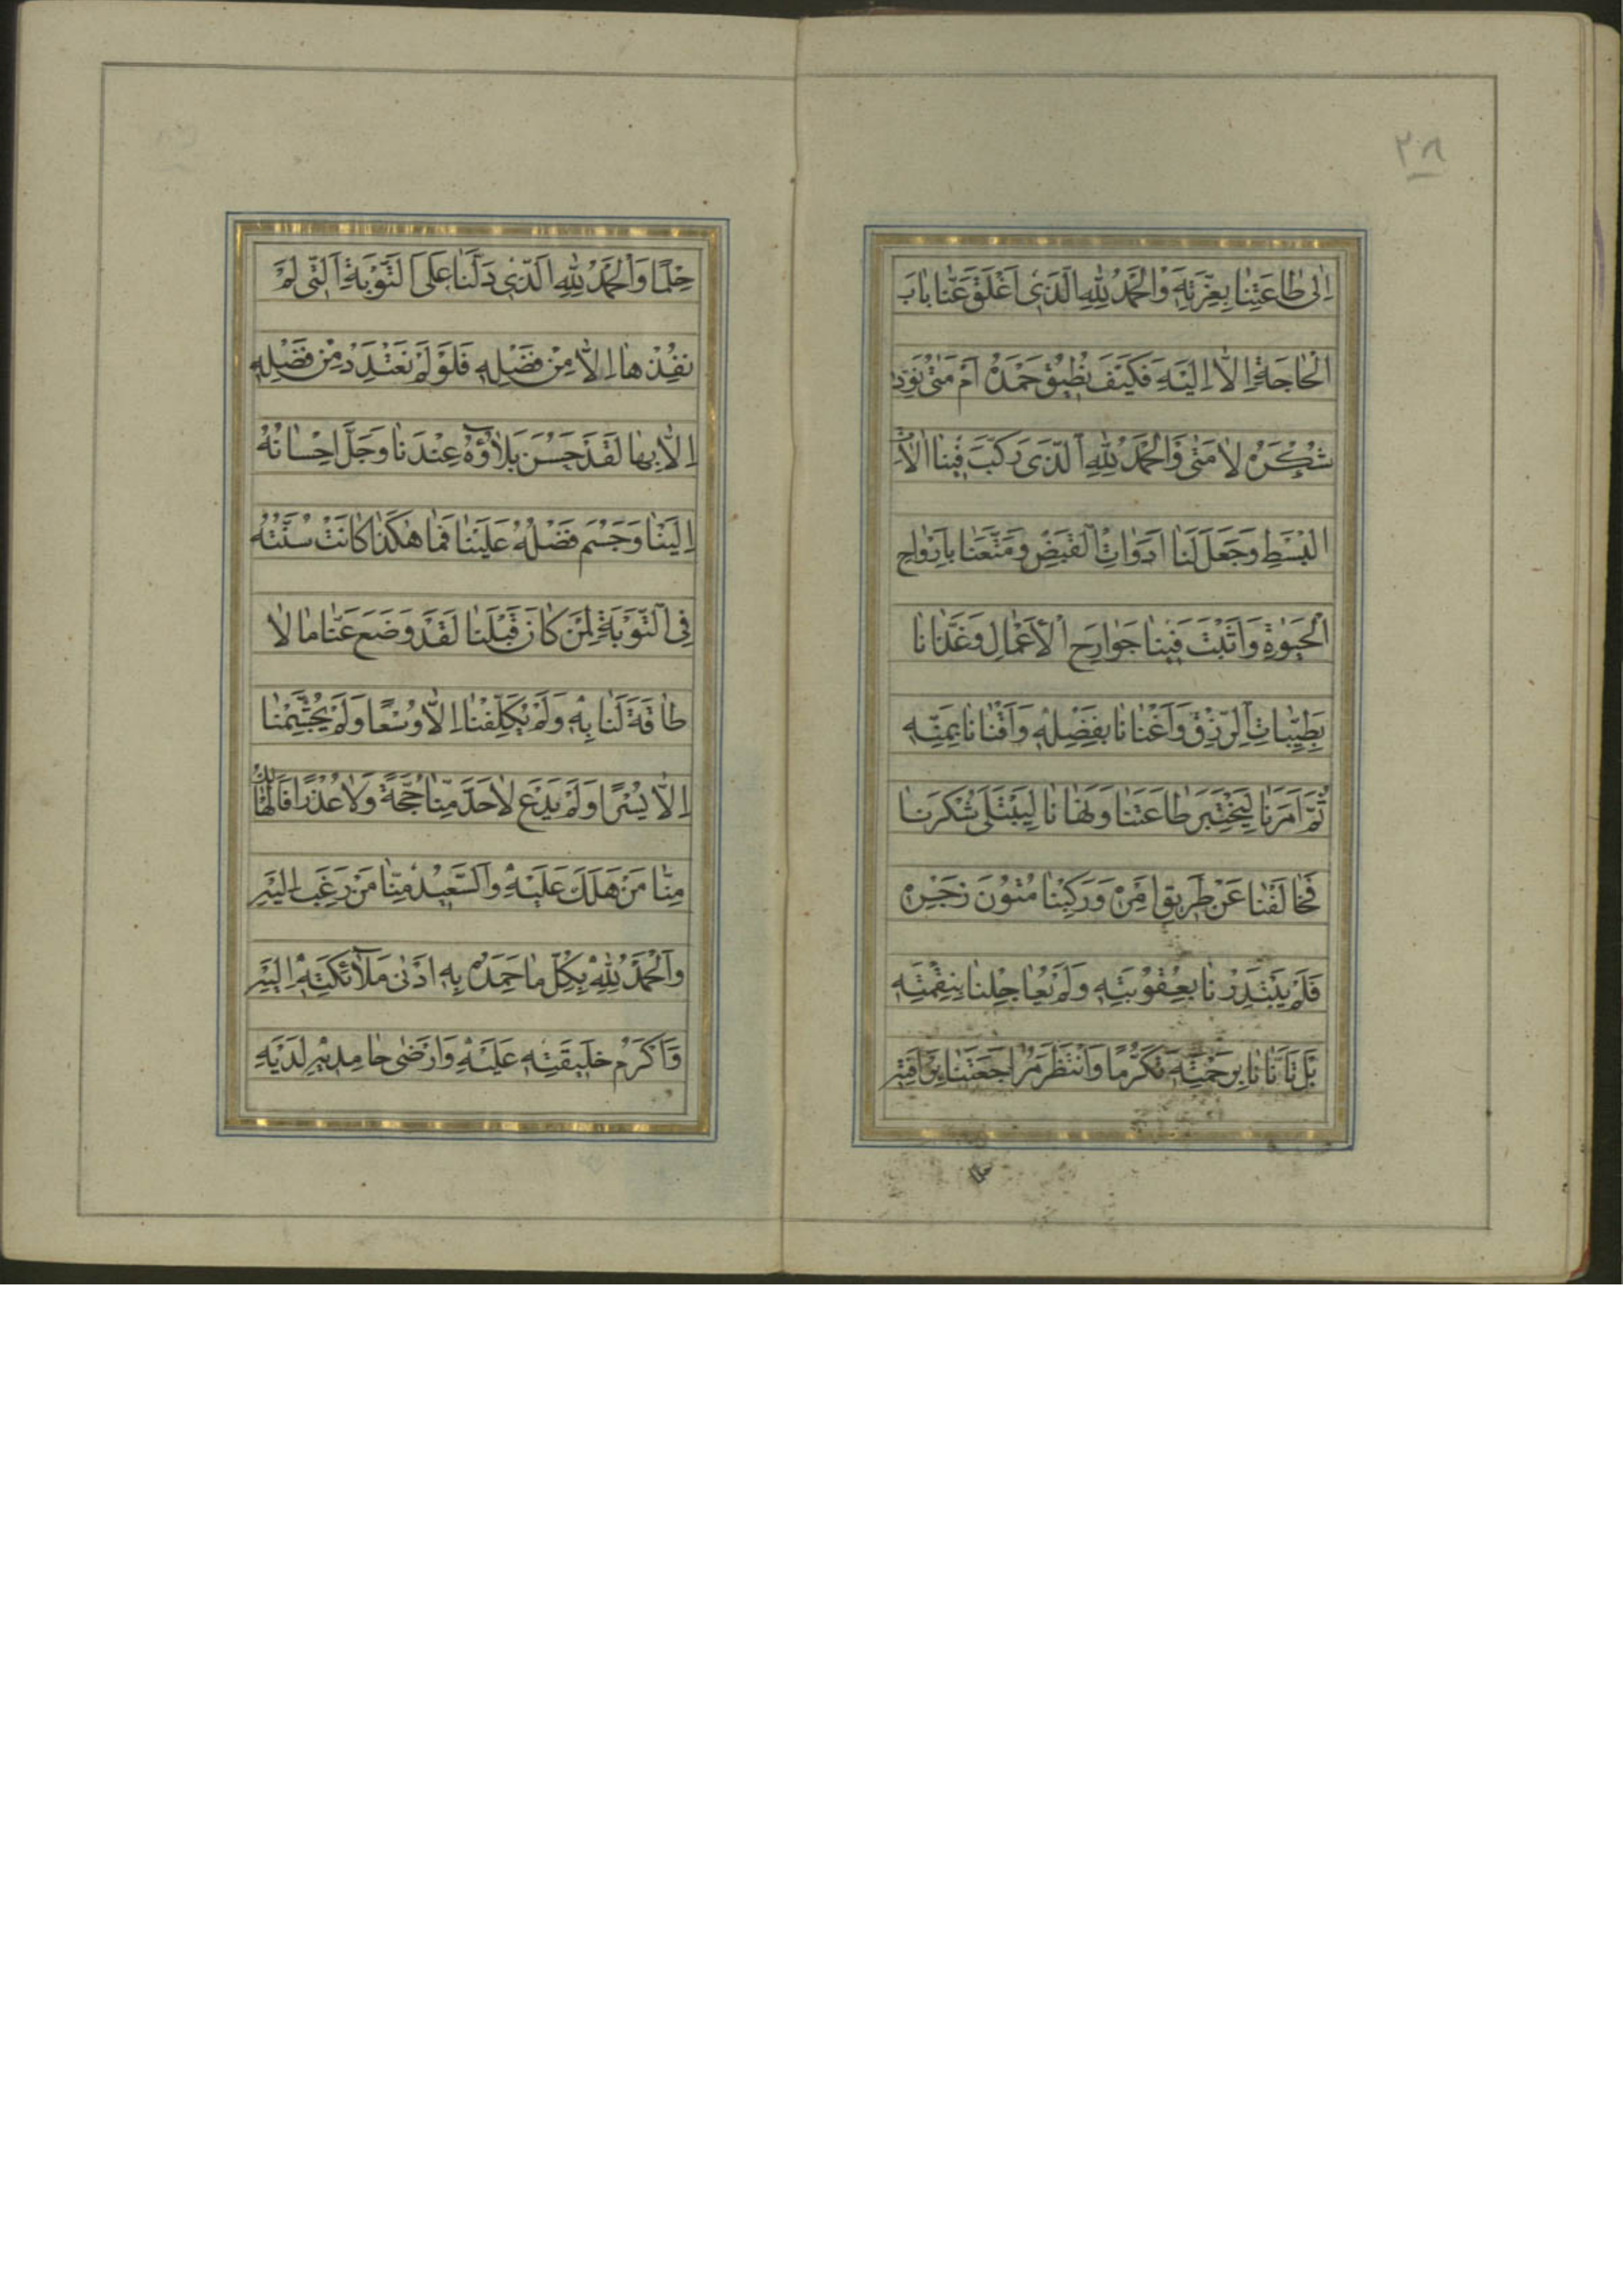 ٢٨
اِلىٰ طٰاعَتِنٰا بِعِزَّتِهٖ وَالْحَمْدُ لِلّٰهِ الَّذى اَغْلَقَ عَنّٰا بٰابَ
الْحٰاجَةِ اِلّٰا اِلَيْهِ فَكَيْفَ نُطيقُ حَمْدَهُ اَمْ مَتىٰ نُؤَدّى
شُكْرَهُ لٰا مَتىٰ وَالْحَمْدُ لِلّٰهِ الَّذى رَكَّبَ فينٰا اٰلٰاتِ
الْبَسْطِ وَجَعَلَ لَنٰا اَدَوٰاتِ الْقَبْضِ وَمَتَّعَنٰا بِاَرْوٰاحِ
الْحَيٰوةِ وَاَثْبَتَ فينٰا جَوٰارِحَ الْاَعْمٰالِ وَغَذّٰانٰا
بِطَيِّبٰاتِ الرِّزْقِ وَاَغْنٰانٰا بِفَضْلِهٖ وَاَقْنٰانٰا بِمَنِّهٖ
ثُمَّ اَمَرَنٰا لِيَخْتَبِرَ طٰاعَتَنٰا وَنَهٰانٰا لِيَبْتَلِىَ شُكْرَنٰا
فَخٰالَفْنٰا عَنْ طَريقِ اَمْرِهٖ وَرَكِبْنٰا مُتُونَ زَجْرِهٖ
فَلَمْ يَبْتَدِرْنٰا بِعُقُوبَتِهٖ وَلَمْ يُعٰاجِلْنٰا بِنِقْمَتِهٖ
بَلْ تَاَنّٰانٰا بِرَحْمَتِهٖ تَكَرُّمًا وَانْتَظَرَ مُرٰاجَعَتَنٰا بِرَاْفَتِهٖ
حلما
حِلْمًا وَالْحَمْدُ لِلّٰهِ الَّذى دَلَّنٰا عَلَى التَّوْبَةِ الَّتى لَمْ
نُفِدْهٰا اِلّٰا مِنْ فَضْلِهٖ فَلَوْ لَمْ نَعْتَدِدْ مِنْ فَضْلِهٖ
اِلّٰا بِهٰا لَقَدْ حَسُنَ بَلٰاؤُهُ عِنْدَنٰا وَجَلَّ اِحْسٰانُهُ
اِلَيْنٰا وَجَسُمَ فَضْلُهُ عَلَيْنٰا فَمٰا هٰكَذٰا كٰانَتْ سُنَّتُهُ
فِى التَّوْبَةِ لِمَنْ كٰانَ قَبْلَنٰا لَقَدْ وَضَعَ عَنّٰا مٰا لٰا
طٰاقَةَ لَنٰا بِهٖ وَلَمْ يُكَلِّفْنٰا اِلّٰا وُسْعًا وَلَمْ يُجَشِّمْنٰا
اِلّٰا يُسْرًا وَلَمْ يَدَعْ لِاَحَدٍ مِنّٰا حُجَّةً وَلٰا عُذْرًا فَالْهٰالِكُ
مِنّٰا مَنْ هَلَكَ عَلَيْهِ وَالسَّعيدُ مِنّٰا مَنْ رَغِبَ اِلَيْهِ
وَالْحَمْدُ لِلّٰهِ بِكُلِّ مٰا حَمِدَهُ بِهٖ اَدْنىٰ مَلٰائِكَتِهٖ اِلَيْهِ
وَاَكْرَمُ خَليقَتِهٖ عَلَيْهِ وَاَرْضىٰ حٰامِديهِ لَدَيْهِ